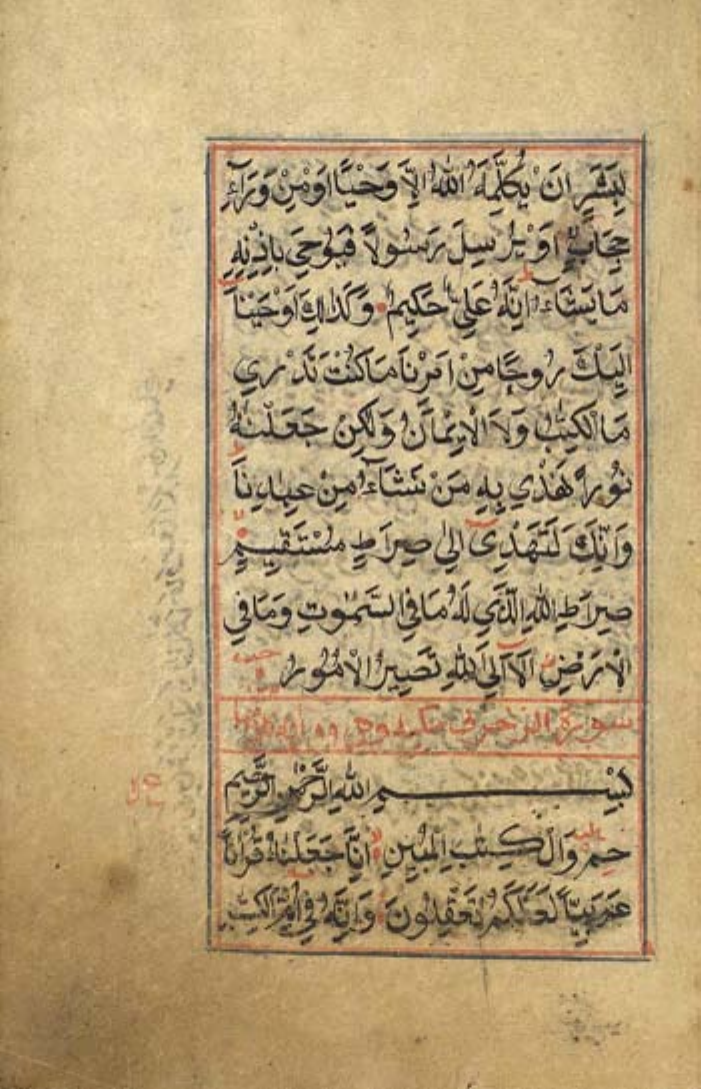 لِبَشَرٍ اَنْ يُكَلِّمَهُ اللّٰهُ اِلَّا وَحْيًا اَوْ مِنْ وَرَآءِ
حِجَابٍ اَوْ يُرْسِلَ رَسُولًا فَيُوحِيَ بِاِذْنِهِ
مَا يَشَآءُ اِنَّهُ عَلِيٌّ حَكِيمٌ وَكَذٰلِكَ اَوْحَيْنَا
اِلَيْكَ رُوحًا مِنْ اَمْرِنَا مَا كُنْتَ تَدْرِي
مَا الْكِتٰبُ وَلَا الْاِيمَانُ وَلٰكِنْ جَعَلْنٰهُ
نُورًا نَهْدِي بِهِ مَنْ نَشَآءُ مِنْ عِبَادِنَا
وَاِنَّكَ لَتَهْدِي اِلٰى صِرَاطٍ مُسْتَقِيمٍ
صِرَاطِ اللّٰهِ الَّذِي لَهُ مَا فِي السَّمٰوٰتِ وَمَا فِي
الْاَرْضِ اَلَا اِلَى اللّٰهِ تَصِيرُ الْاُمُورُ
سورة الزخرف مكية وهي
بِسْمِ اللّٰهِ الرَّحْمٰنِ الرَّحِيمِ
حٰمٓ وَالْكِتٰبِ الْمُبِينِ اِنَّا جَعَلْنٰهُ قُرْاٰنًا
عَرَبِيًّا لَعَلَّكُمْ تَعْقِلُونَ وَاِنَّهُ فِي اُمِّ الْكِتٰبِ